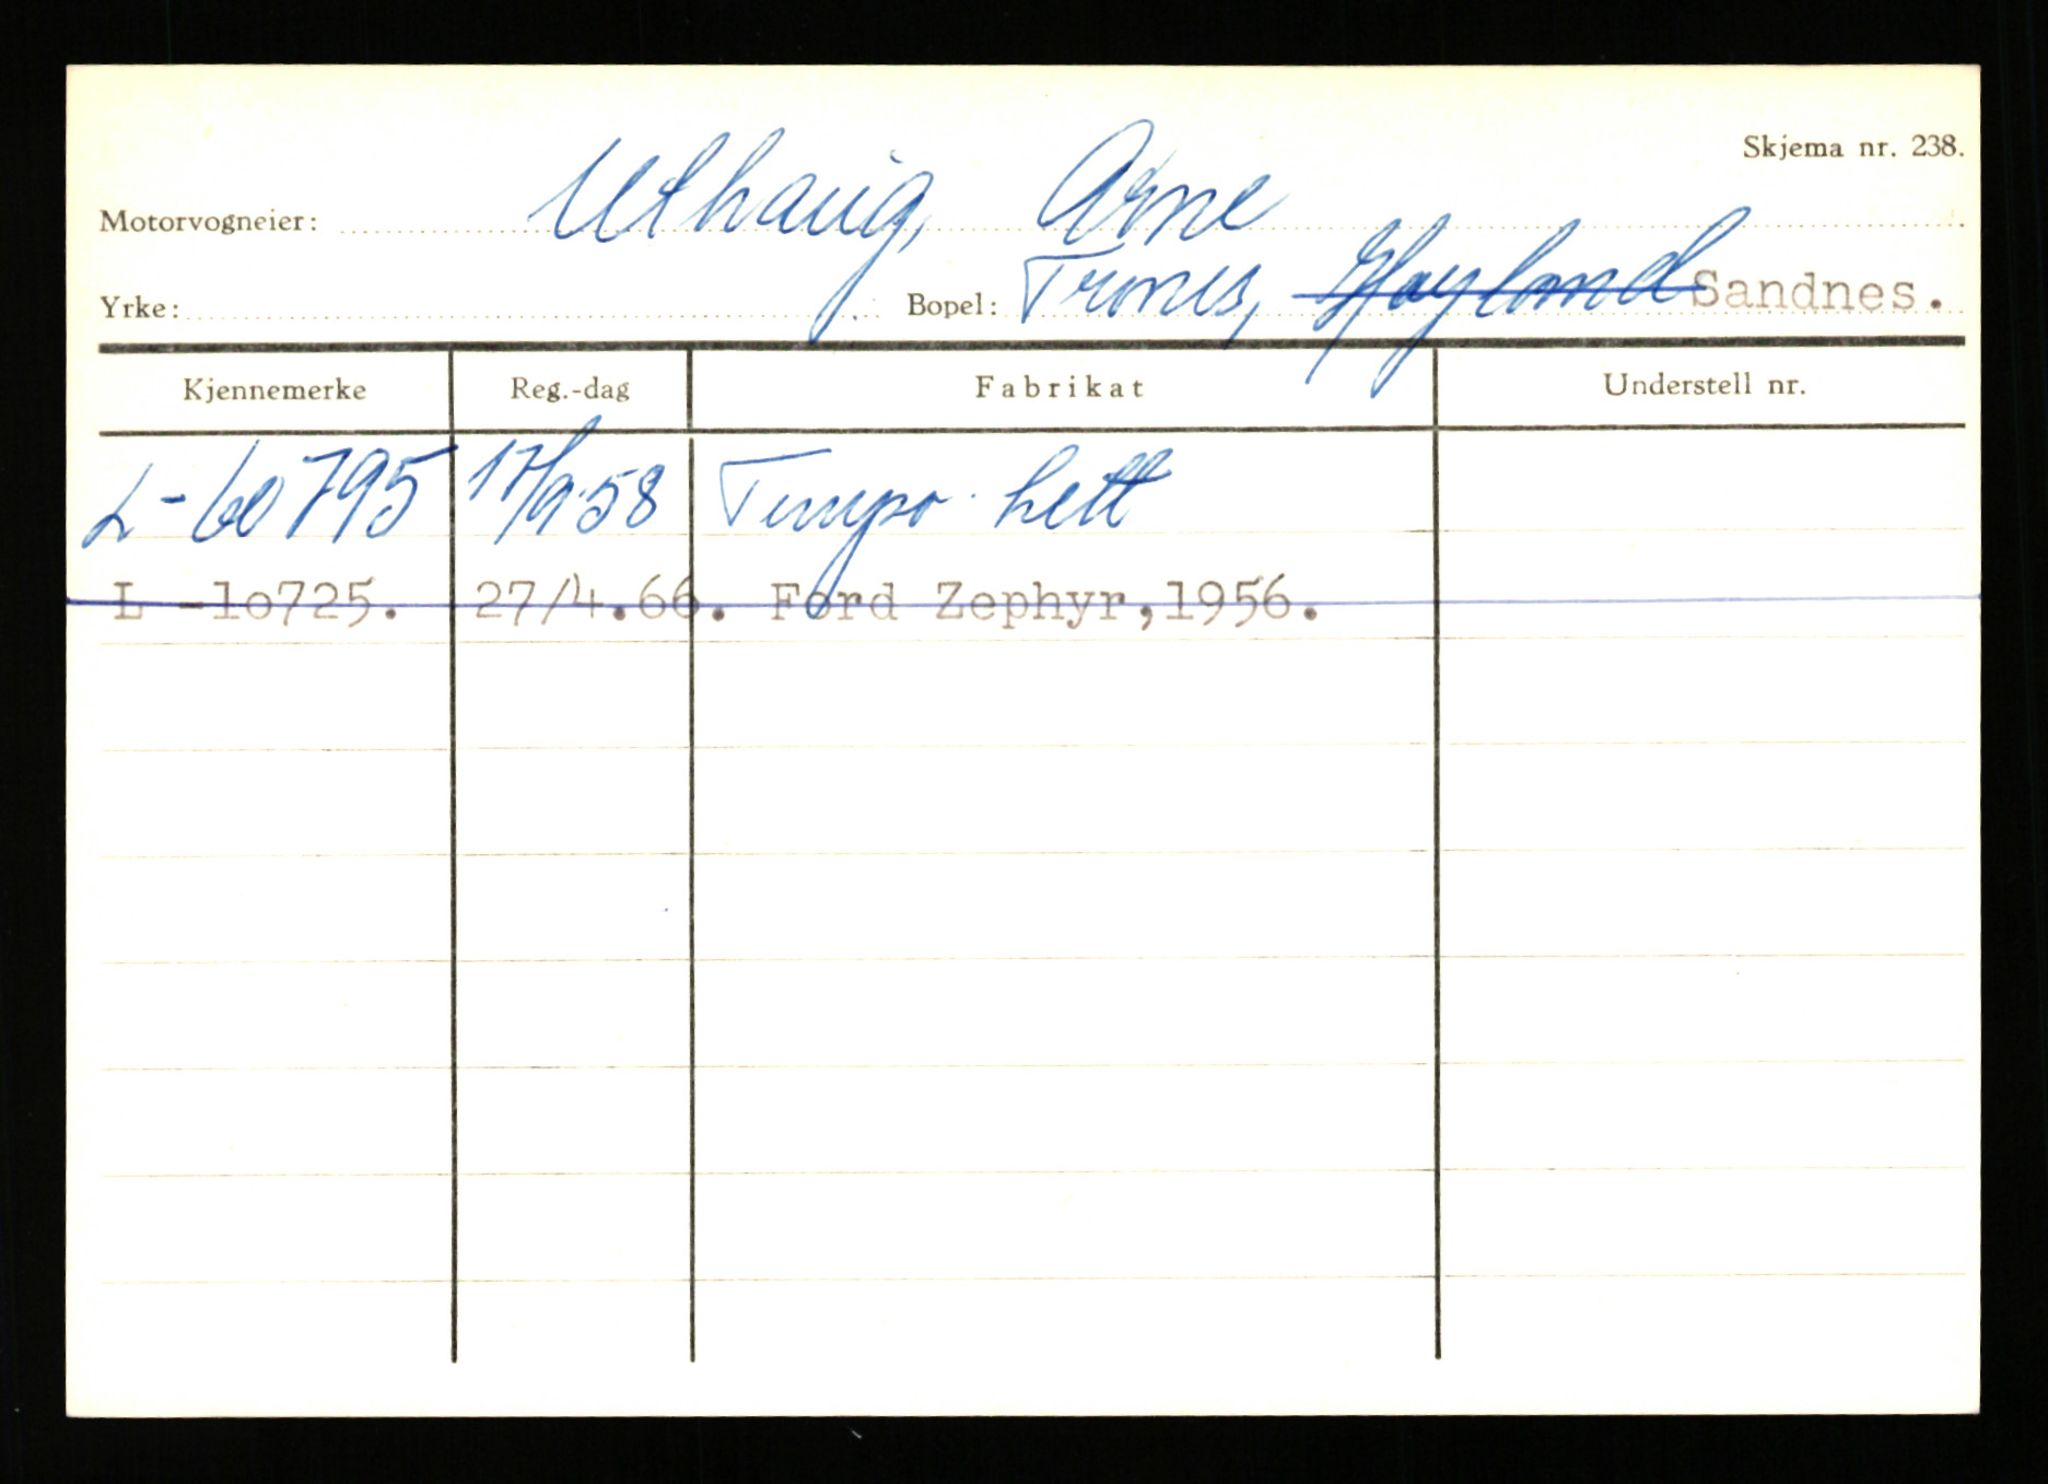 Skjema nr. 238.
Motorvogneier: Uthaug, Arne
Yrke: Bopel: Trones, Høyland Sandnes.
Kjennemerke Reg.-dag Fabrikat Understell nr.
L-60795 17/9.58 Tempo lett
L -lo725. 27/4.66. Ford Zephyr,1956.